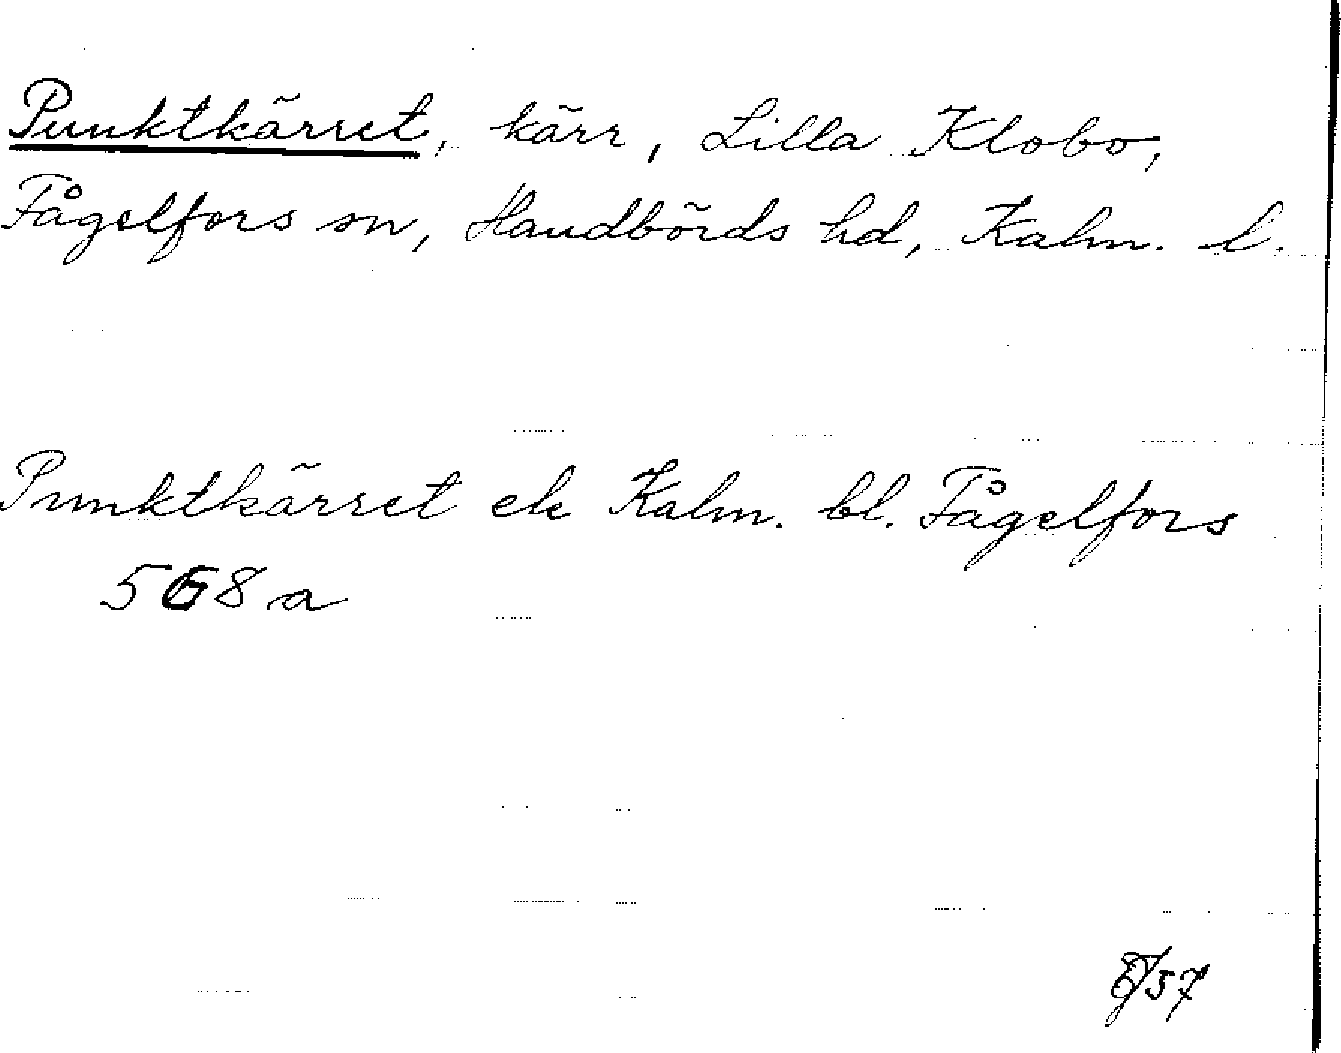 Punktkärret, kärr, Lilla Klobo,
Fågelfors sn, Handbörds hd, Kalm. l.
Punktkärret ek Kalm. bl. Fågelfors
568 a
57